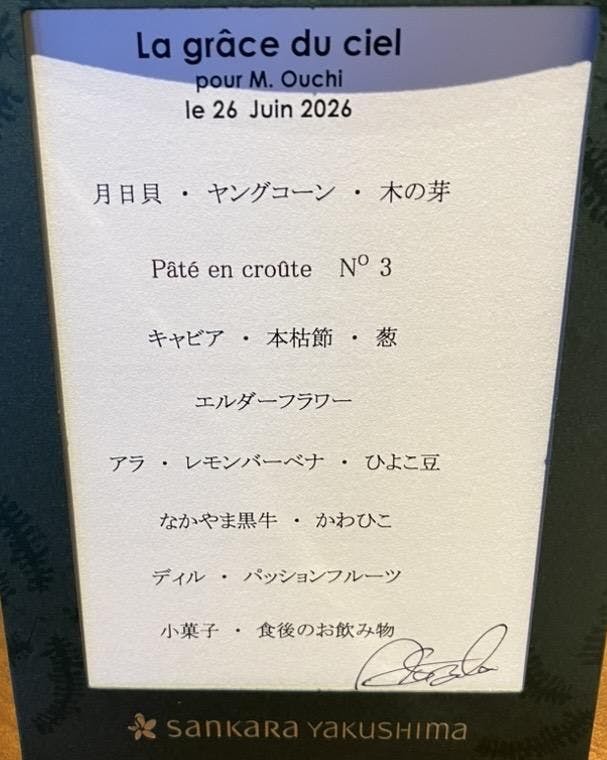 La grâce du ciel
pour M. Ouchi
le 26 Juin 2026
月日貝 ・ ヤングコーン ・ 木の芽
Pâté en croûte Nº 3
キャビア ・ 本枯節 ・ 葱
エルダーフラワー
アラ ・ レモンバーベナ ・ ひよこ豆
なかやま黒牛 ・ かわひこ
ディル ・ パッションフルーツ
小菓子 ・ 食後のお飲み物
sankara yakushima